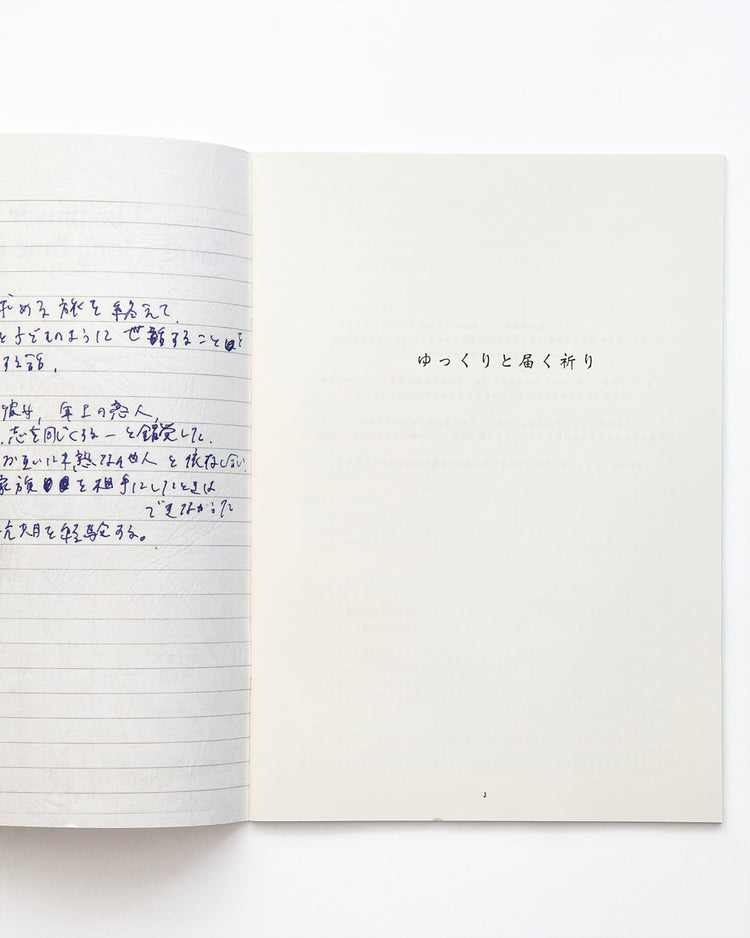 求める旅を終えて、
と子どものように世話すること
する話。
彼女、年上の恋人、
志を同じくする一と錯覚した.
が互いに未熟な他人と依存し合い
家族を相手にしたときは
できなかった
抗期を経験する。
ゆっくりと届く祈り